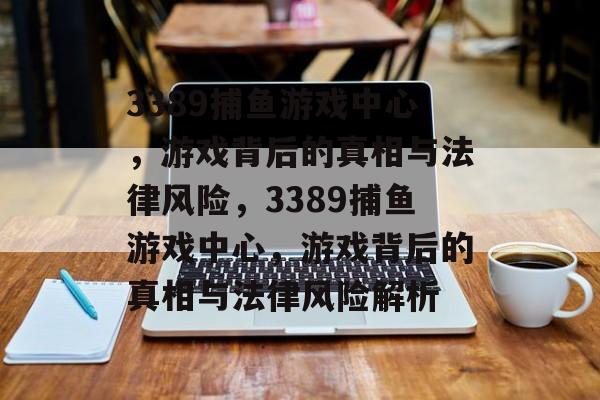 3389捕鱼游戏中心
，游戏背后的真相与法
律风险，3389捕鱼
游戏中心，游戏背后的
真相与法律风险解析